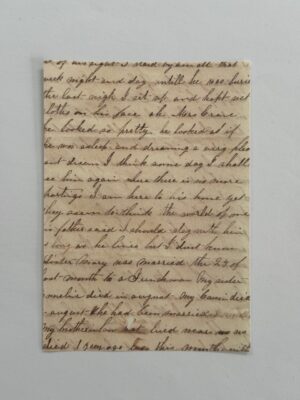 of his night I staid by him all that
week night and day untill he was buried
the last nigh I sit up and kept wet
cloths on his face oh Mrs Crane
he looked so pretty he looked as if
he was asleep and dreaming a very pleas
ant dream I think some day I shall
see him again where there is no more
parting I am here to his home yet
they seem to think the world of me
his father said I should stay with him
as long as he lives but I dont know
Sister Mary was married the 23 of
last month to a
died in august My Cousin died
in august She had been married
my brother in law
died 1 year ago this month